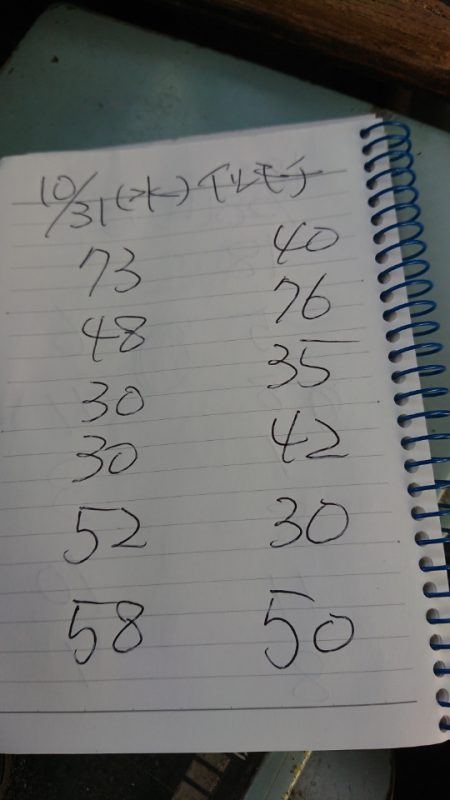 10/31(水)イルモチ
73 40
48 76
30 35
30 42
52 30
58 50